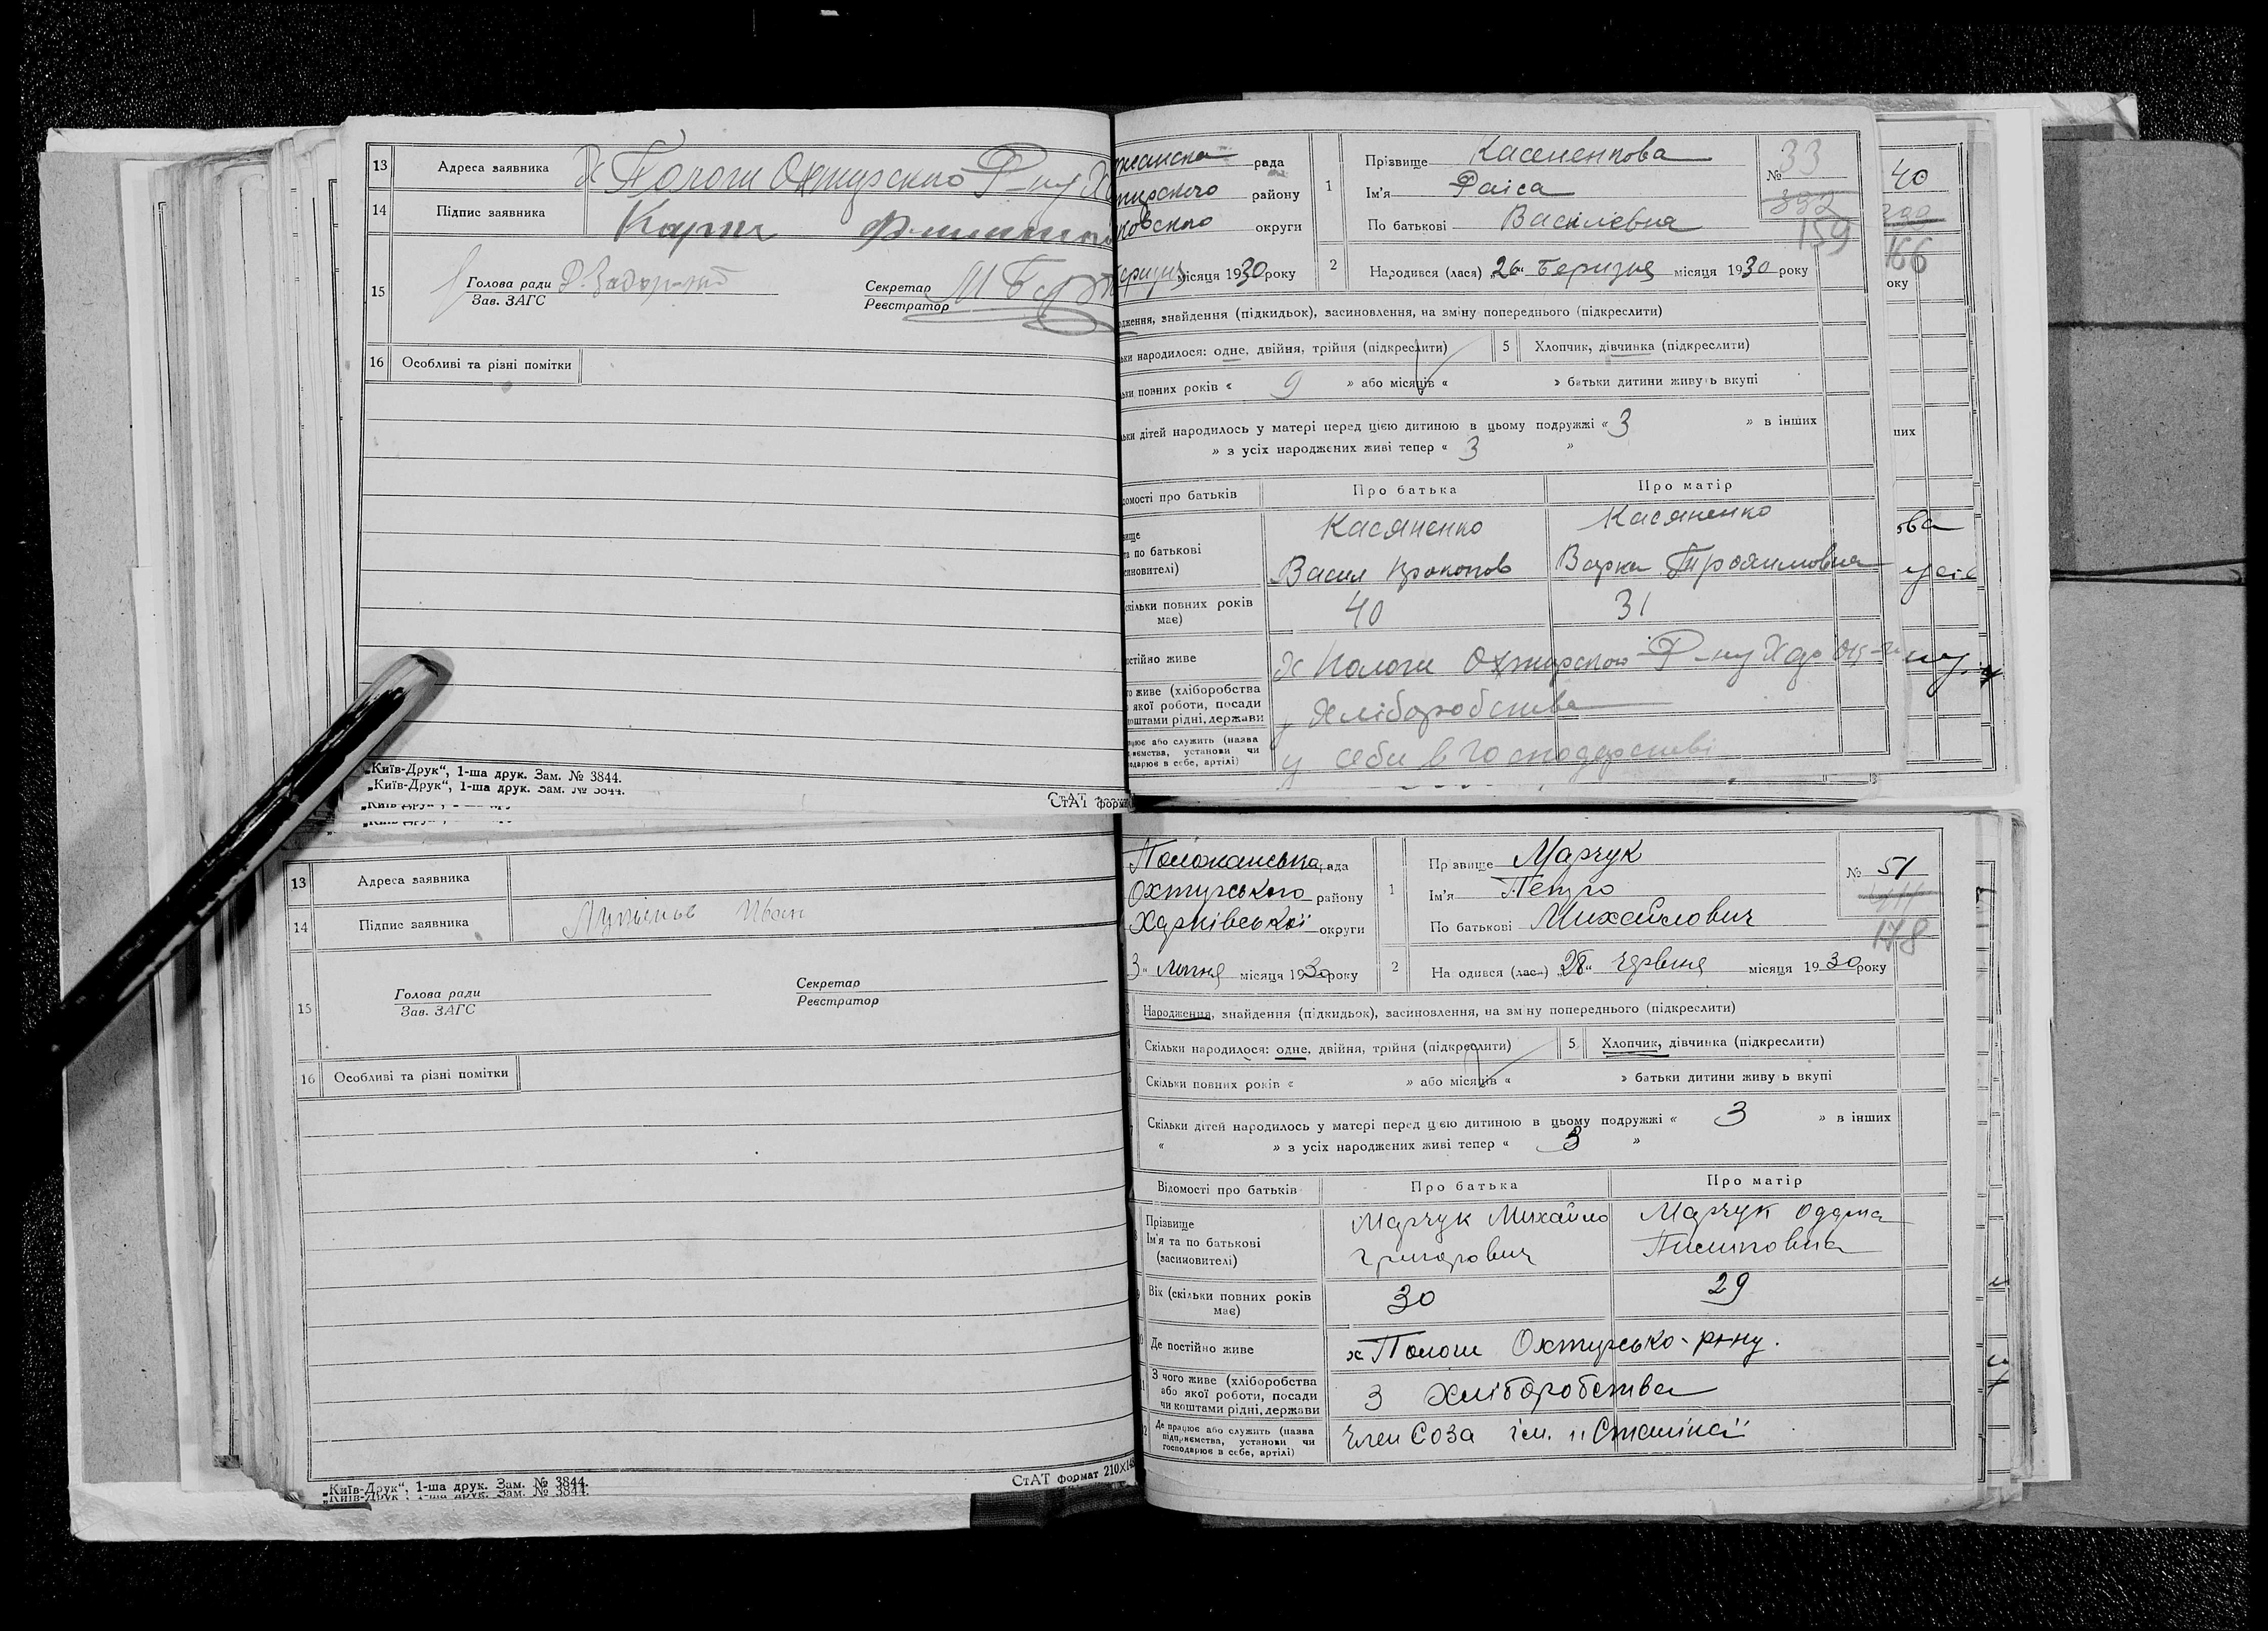 13 Адреса заявника х Пологи Охтирского Р-ну
14 Підпис заявника
15 Голова ради
Зав. ЗАГС
Секретар
Реєстратор
16 Особливі та різні помітки
„Київ-Друк“, 1-ша друк. Зам. № 3844.
„Київ-Друк“, 1-ша друк. Зам. № 3844.
СтАТ форм
рада
району
округи
місяця 1930 року
1 Прізвище Касененкова
Ім'я Раіса
По батькові Василевна
№ 33
332
159
2 Народився (лася) „26“ Березня місяця 1930 року
дження, знайдення (підкидьок), засиновлення, на зміну попереднього (підкреслити)
ьки народилося: одне, двійня, трійня (підкреслити) 5 Хлопчик, дівчинка (підкреслити)
ьки повних років « 9 » або місяців « » батьки дитини живуть вкупі
ьки дітей народилось у матері перед цією дитиною в цьому подружжі « 3 » в інших
» з усіх народжених живі тепер « 3 »
омості про батьків Про батька Про матір
вище
та по батькові
синовителі)
Касяненко
Васил Прокопов
Касяненко
Варка Трохимовна
скільки повних років
має)
40 31
остійно живе х Пологи Охтирского Р-ну
го живе (хліборобства
якої роботи, посади
коштами рідні, держави
Хліборобства
ацює або служить (назва
иємства, установи чи
одарює в себе, артілі)
у себи в господарстві
40
166
оку
них
ова
13 Адреса заявника
14 Підпис заявника Іван
15 Голова ради
Зав. ЗАГС
Секретар
Реєстратор
16 Особливі та різні помітки
„Київ-Друк“, 1-ша друк. Зам. № 3844.
„Київ-Друк“, 1-ша друк. Зам. № 3844.
СтАТ формат 210×14
Положанська рада
Охтирського району
Харківської округи
3“ липня місяця 1930 року
1 Прізвище Марчук
Ім'я Петро
По батькові Михайлович
№ 51
178
2 Народився (лася) „28“ Червня місяця 1930 року
3 Народження, знайдення (підкидьок), засиновлення, на зміну попереднього (підкреслити)
Скільки народилося: одне, двійня, трійня (підкреслити) 5 Хлопчик, дівчинка (підкреслити)
Скільки повних років « » або місяців « » батьки дитини живуть вкупі
Скільки дітей народилось у матері перед цією дитиною в цьому подружжі « 3 » в інших
« » з усіх народжених живі тепер « 3 »
Відомості про батьків Про батька Про матір
8 Прізвище
Ім'я та по батькові
(засиновителі)
Марчук Михайло
Григорович
Марчук Одарка
9 Вік (скільки повних років
має)
30 29
Де постійно живе х Пологи Охтирсько-р-ну.
З чого живе (хліборобства
або якої роботи, посади
чи коштами рідні, держави
З хліборобства
Де працює або служить (назва
підприємства, установи чи
господарює в себе, артілі)
Член Соза ім. „Сталіна“